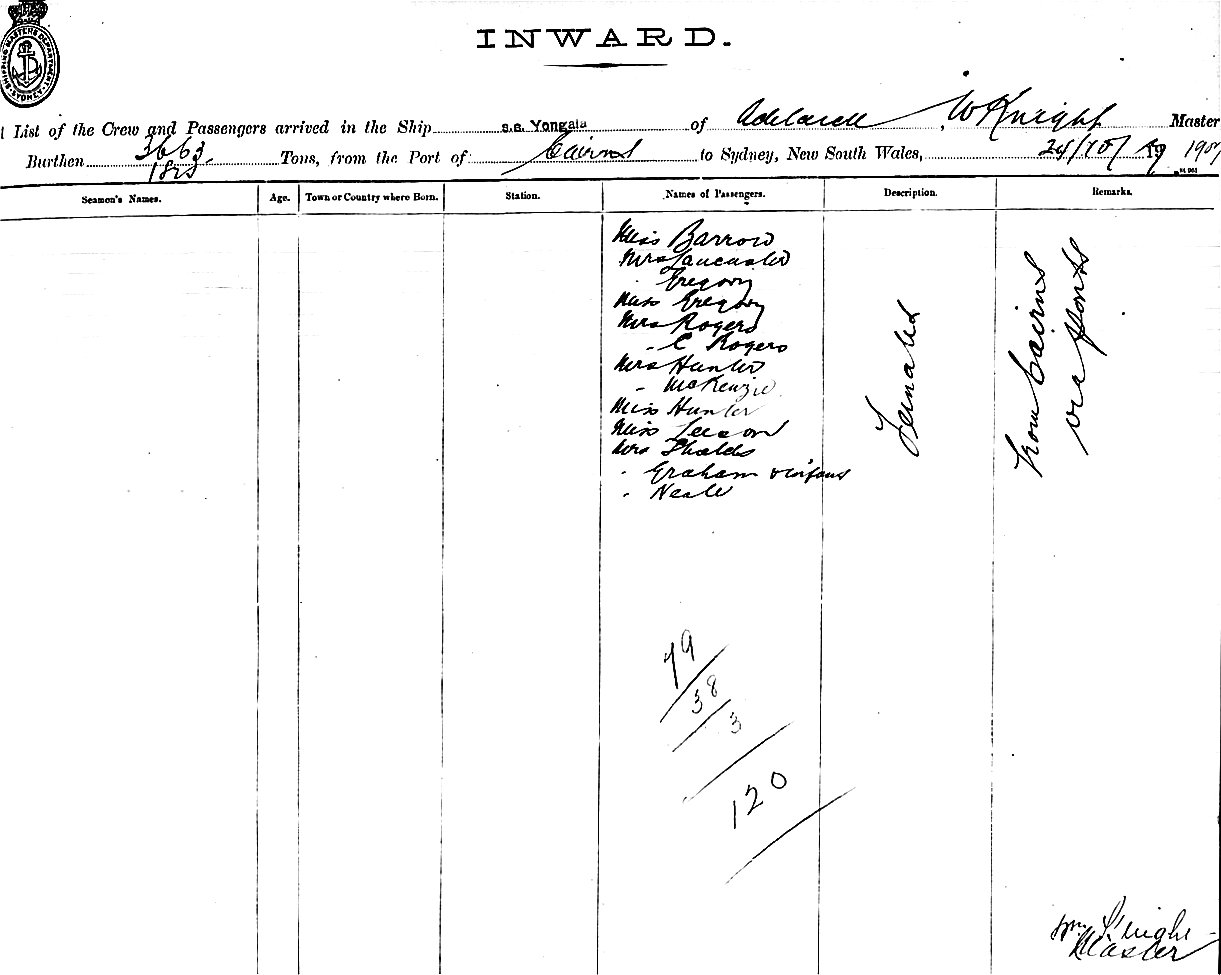 SHIPPING MASTERS DEPARTMENT SYDNEY
INWARD.
List of the Crew and Passengers arrived in the Ship s.s. Yongala of Adelaide, W Knight Master
Burthen 3663 Tons, from the Port of Cairns to Sydney, New South Wales, 24/10/ 190
1825
Seamen's Names. Age. Town or Country where Born. Station. Names of Passengers. Description. Remarks.
Miss Barrow
Mrs Lancaster
" Gregory
Miss Gregory
Mrs Rogers
- C Rogers
Mrs Hunter
- McKenzie
Miss Hunter
Miss
Mrs
- Graham & infant
- Neale
Females
From Cairns
via ports
79
38
3
120
Wm Knight
Master